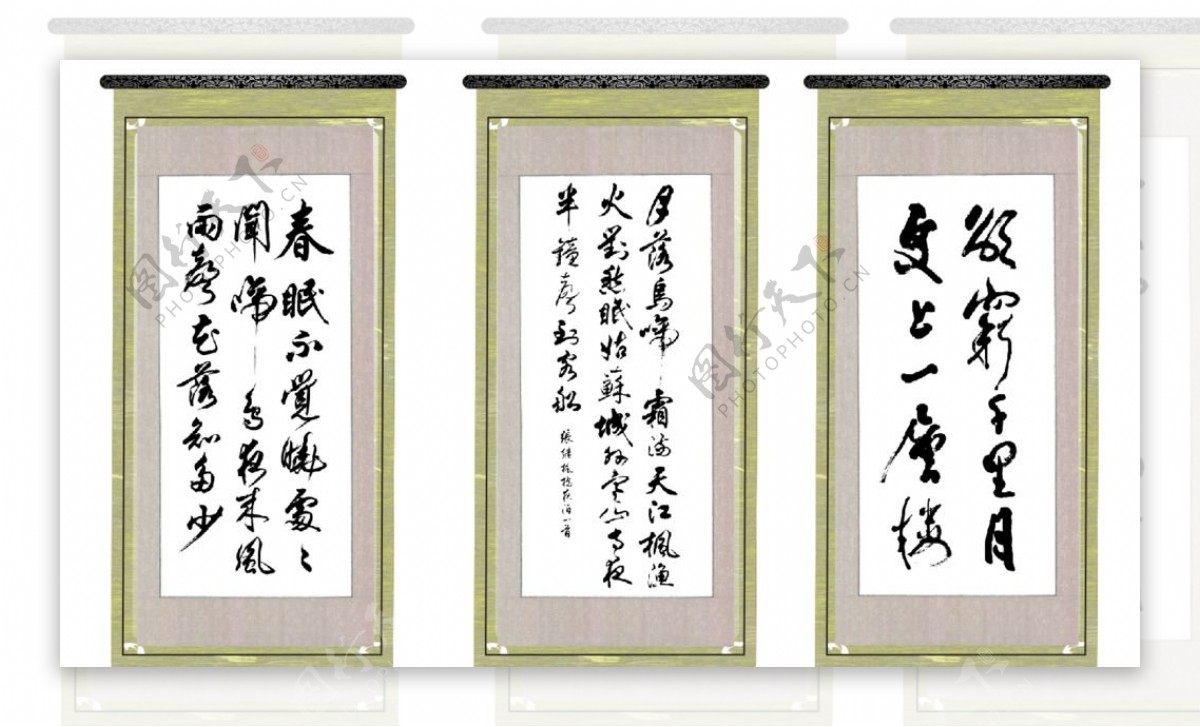 春眠不覺曉處〻
聞啼鳥夜來風
雨聲花落知多少
月落烏啼霜滿天江楓漁
火對愁眠姑蘇城外寒山寺夜
半鐘聲到客船
張继楓橋夜泊一首
欲窮千里目
更上一層楼
图行天下
PHOTOPHOTO.CN
图行天下
PHOTOPHOTO.CN